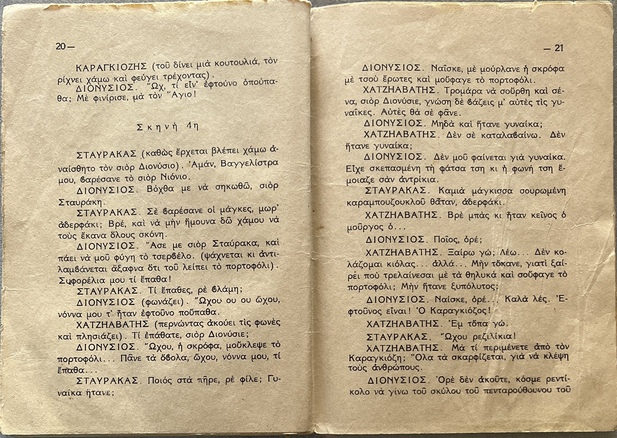 20—
ΚΑΡΑΓΚΙΟΖΗΣ (τοῦ δίνει μιὰ κουτουλιά, τὸν
ρίχνει χάμω καὶ φεύγει τρέχοντας).
ΔΙΟΝΥΣΙΟΣ. Ὤχ, τί εἶν' ἐφτοῦνο ὁπούπα-
θα; Μὲ φινίρισε, μὰ τὸν Ἅγιο!
Σκηνὴ 4η
ΣΤΑΥΡΑΚΑΣ (καθὼς ἔρχεται βλέπει χάμω ἀ-
ναίσθητο τὸν σιὸρ Διονύσιο). Ἀμάν, Βαγγελίστρα
μου, βαρέσανε τὸ σιὸρ Νιόνιο.
ΔΙΟΝΥΣΙΟΣ. Βόχθα με νὰ σηκωθῶ, σιὸρ
Σταυράκη.
ΣΤΑΥΡΑΚΑΣ. Σὲ βαρέσανε οἱ μάγκες, μωρ'
ἀδερφάκι; Βρέ, καὶ νὰ μὴν ἤμουνα δῶ χάμου νὰ
τοὺς ἔκανα ὅλους σκόνη.
ΔΙΟΝΥΣΙΟΣ. Ἄσε με σιὸρ Σταύρακα, καὶ
πάει νὰ μοῦ φύγη τὸ τσερβέλο. (ψάχνεται κι ἀντι-
λαμβάνεται ἄξαφνα ὅτι τοῦ λείπει τὸ πορτοφόλι).
Σιφορέλια μου τί ἔπαθα!
ΣΤΑΥΡΑΚΑΣ. Τί ἔπαθες, ρὲ βλάμη;
ΔΙΟΝΥΣΙΟΣ (φωνάζει). Ὤχου ου ου ὤχου,
νόννα μου τ' ἤταν ἐφτοῦνο ποὔπαθα.
ΧΑΤΖΗΑΒΑΤΗΣ (περνώντας ἀκούει τὶς φωνὲς
καὶ πλησιάζει). Τί ἐπάθατε, σιὸρ Διονύσιε;
ΔΙΟΝΥΣΙΟΣ. Ὤχου, ἡ σκρόφα, μοὔκλεψε τὸ
πορτοφόλι... Πᾶνε τὰ ὄβολα, ὤχου, νόννα μου, τί
ἔπαθα...
ΣΤΑΥΡΑΚΑΣ. Ποιὸς στὰ πῆρε, ρὲ φίλε; Γυ-
ναίκα ἤτανε;
—21
ΔΙΟΝΥΣΙΟΣ. Ναῖσκε, μὲ μούρλανε ἡ σκρόφα
μὲ τσοὺ ἔρωτες καὶ μοὔφαγε τὸ πορτοφόλι.
ΧΑΤΖΗΑΒΑΤΗΣ. Τρομάρα νὰ σοὔρθη καὶ σέ-
να, σιὸρ Διονύσιε, γνώση δὲ βάζεις μ' αὐτὲς τὶς γυ-
ναῖκες. Αὐτὲς θὰ σὲ φᾶνε.
ΔΙΟΝΥΣΙΟΣ. Μηδὰ καὶ ἤτανε γυναίκα;
ΧΑΤΖΗΑΒΑΤΗΣ. Δὲν σὲ καταλαβαίνω. Δὲν
ἤτανε γυναίκα;
ΔΙΟΝΥΣΙΟΣ. Δὲν μοῦ φαίνεται γιὰ γυναίκα.
Εἶχε σκεπασμένη τὴ φάτσα τση κι ἡ φωνή τση ἔ-
μοιαζε σὰν ἀντρίκια.
ΣΤΑΥΡΑΚΑΣ. Καμιὰ μάγκισσα σουρωμένη
καραμπουζουκλοῦ θἄταν, ἀδερφάκι.
ΧΑΤΖΗΑΒΑΤΗΣ. Βρὲ μπὰς κι ἤταν κεῖνος ὁ
μοῦργος ὁ...
ΔΙΟΝΥΣΙΟΣ. Ποῖος, ὀρέ;
ΧΑΤΖΗΑΒΑΤΗΣ. Ξαίρω γώ; Λέω... Δὲν κο-
λάζομαι κιόλας... ἀλλά... Μὴν τὄκανε, γιατὶ ξαί-
ρει ποὺ τρελαίνεσαι μὲ τὰ θηλυκὰ καὶ σοὔφαγε τὸ
πορτοφόλι; Μὴν ἤτανε ξυπόλυτος;
ΔΙΟΝΥΣΙΟΣ. Ναίσκε, ὀρέ... Καλὰ λές. Ἐ-
φτοῦνος εἶναι! Ὁ Καραγκιόζης!
ΧΑΤΖΗΑΒΑΤΗΣ. Ἐμ τὄπα γώ.
ΣΤΑΥΡΑΚΑΣ. Ὤχου ρεζιλίκια!
ΧΑΤΖΗΑΒΑΤΗΣ. Μὰ τί περιμένετε ἀπὸ τὸν
Καραγκιόζη; Ὅλα τὰ σκαρφίζεται, γιὰ νὰ κλέψη
τοὺς ἀνθρώπους.
ΔΙΟΝΥΣΙΟΣ. Ὀρὲ δὲν ἀκοῦτε, κόσμε ρεντί-
κολο νὰ γίνω τοῦ σκύλου τοῦ πενταρούθουνου τοῦ